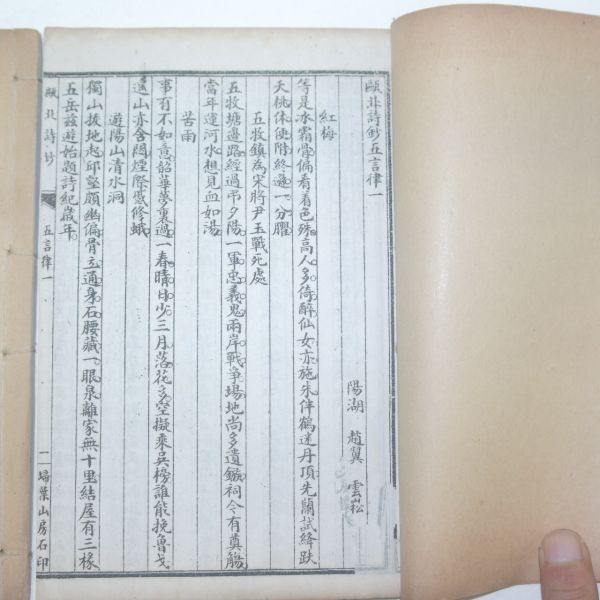 甌北詩鈔五言律一
陽湖 趙翼 雲崧
紅梅
等是冰霜骨偏看着色殊高人多倚醉仙女亦施朱伴鶴迷丹頂先蘭試絳趺
夭桃休便附終遜一分臞
五牧鎮為宋將尹玉戰死處
五牧塘邊路經過弔夕陽一軍忠義鬼兩岸戰爭場地尚多遺鏃祠今有奠觴
當年運河水想見血如湯
苦雨
事有不如意韶華夢裏過一春晴日少三月落花多空擬乘吳榜誰能挽魯戈
遠山亦含悶煙際蹙修蛾
遊陽山清水洞
獨山拔地起邱壑頗幽偏骨立通身石腰藏一眼泉離家無十里結屋有三椽
五岳茲遊始題詩紀歲年
甌北詩鈔
五言律一
二
埽葉山房石印